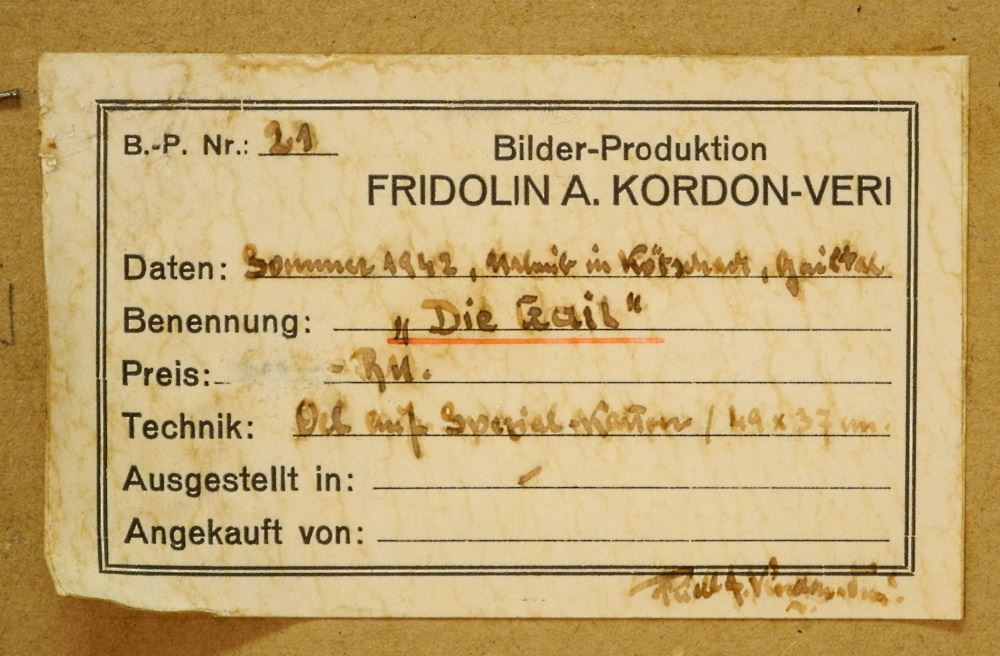 B.-P. Nr.: 21
Bilder-Produktion
FRIDOLIN A. KORDON-VERI
Daten: Sommer 1942, in Kötschach, Gailtal
Benennung: „Die Gail“
Preis: - RM.
Technik: Oel auf Spezial-Karton / 49 x 37 cm.
Ausgestellt in: -
Angekauft von:
A. Kordon-Veri.